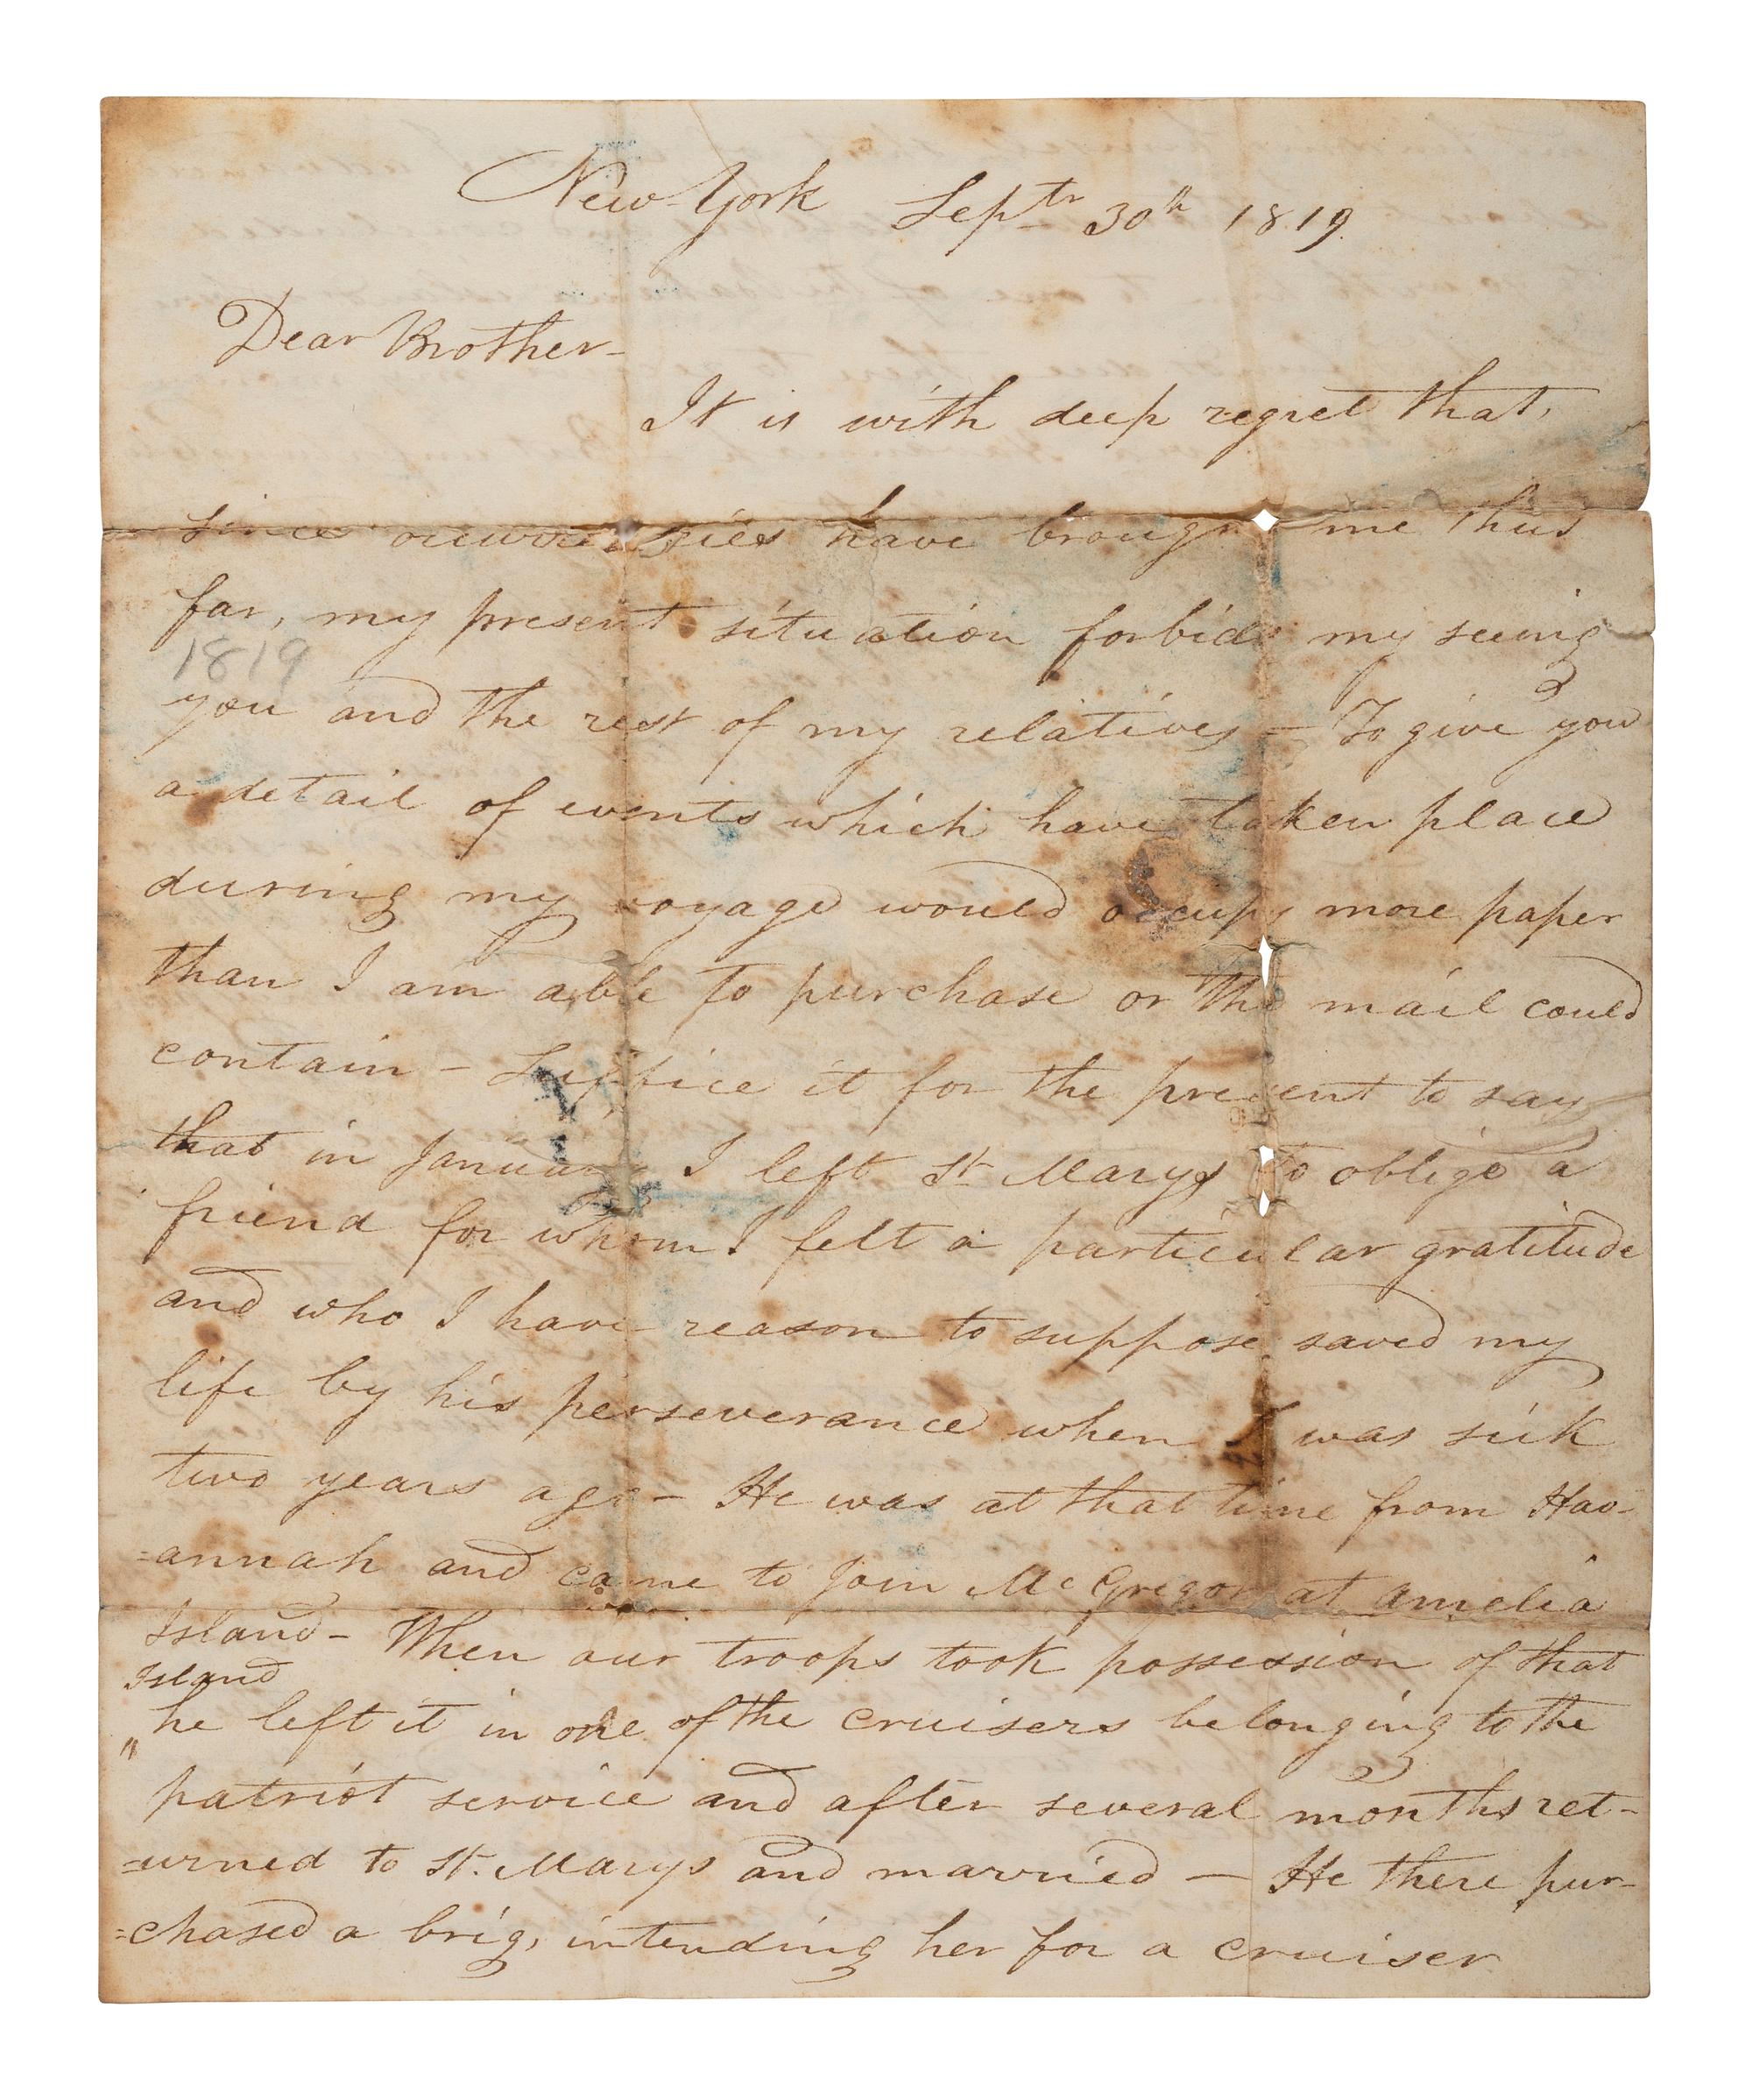 New York Septr 30th 1819.
Dear Brother-
It is with deep regret that,
since have brought me thus
far, my present situation forbids my seeing
1819
you and the rest of my relatives - To give you
a detail of events which have taken place
during my voyage would occupy more paper
than I am able to purchase or the mail could
contain - Suffice it for the present to say
that in January I left St Marys to oblige a
friend for whom I felt a particular gratitude
and who I have reason to suppose saved my
life by his perseverance when I was sick
two years ago - He was at that time from Hav-
=annah and came to join McGregor at Amelia
Island - When our troops took possession of that
Island
" he left it in one of the cruisers belonging to the
patriot service and after several months ret-
=urned to St. Marys and married - He there pur-
=chased a brig, intending her for a cruiser